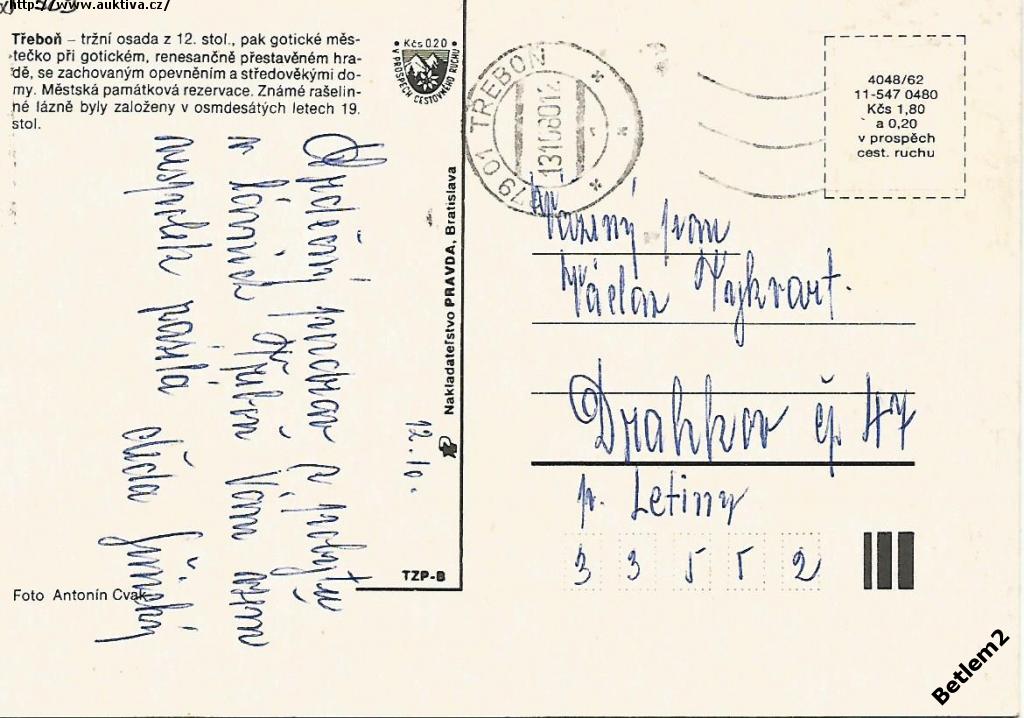 http://www.auktiva.cz/
Třeboň – tržní osada z 12. stol., pak gotické měs-
tečko při gotickém, renesančně přestavěném hra-
dě, se zachovaným opevněním a středověkými do-
my. Městská památková rezervace. Známé rašelin-
né lázně byly založeny v osmdesátých letech 19.
stol.
Kčs 0,20
V PROSPĚCH CESTOVNÉHO RUCHU
Srdečný pozdrav z pobytu
v lázních Třeboň Vám všem
posílá
12. 10.
Nakladatelství PRAVDA, Bratislava
TZP-B
Foto Antonín Cvak
379 01 TŘEBOŇ
13108012
4048/62
11-547 0480
Kčs 1,80
a 0,20
v prospěch
cest. ruchu
Vážený pan
Václav Tykvart.
Drahkov čp 47
p. Letiny
3 3 5 5 2
Betlem2